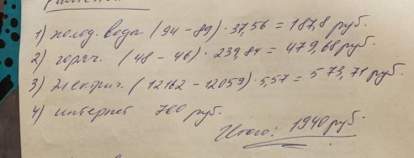 1) холод. вода (94 - 89) · 37,56 = 187,8 руб.
2) горяч. (48 - 46) · 239,84 = 479,68 руб.
3) электрич. (12162 - 12059) · 5,57 = 573,71 руб.
4) интернет 700 руб.
Итого: 1940 руб.